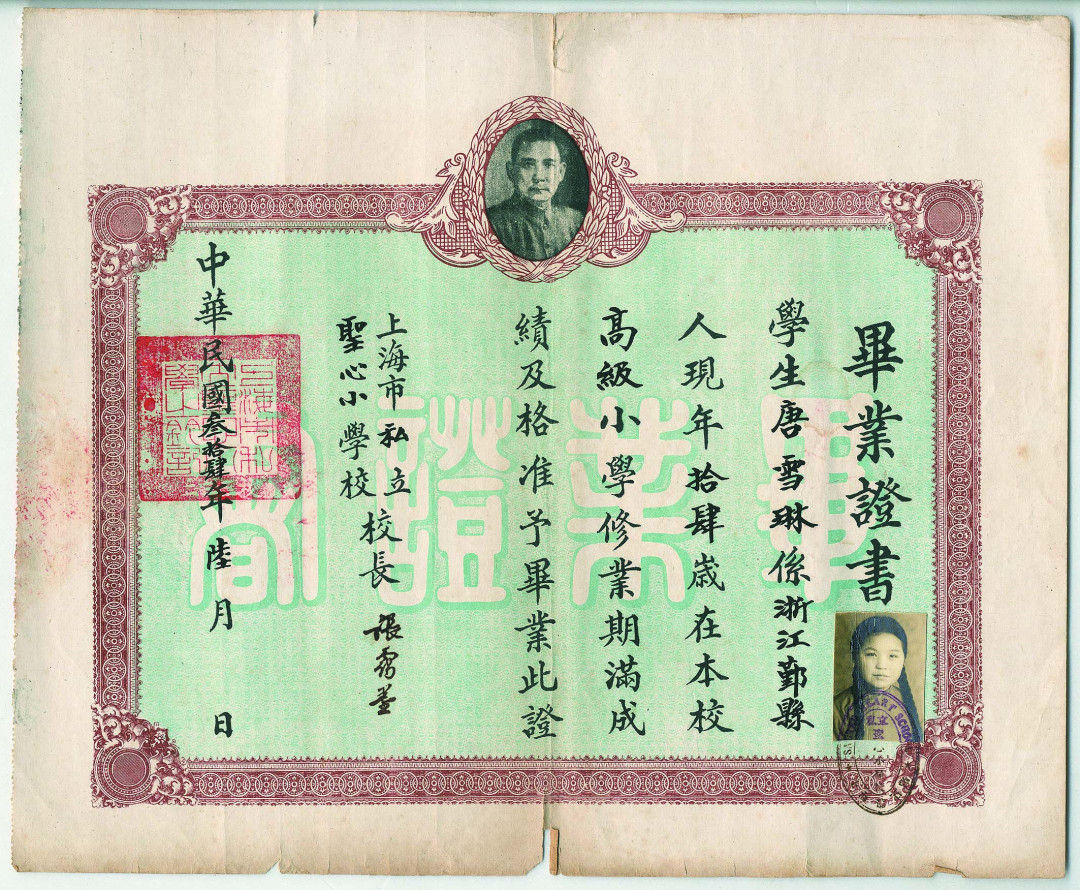 畢業證書
學生唐雪琳係浙江鄞縣
人現年拾肆歲在本校
高級小學修業期滿成
績及格准予畢業此證
上海市私立
聖心小學校
校長
張
中華民國叁拾肆年陸月 日
畢業證書
HEART SCHOO